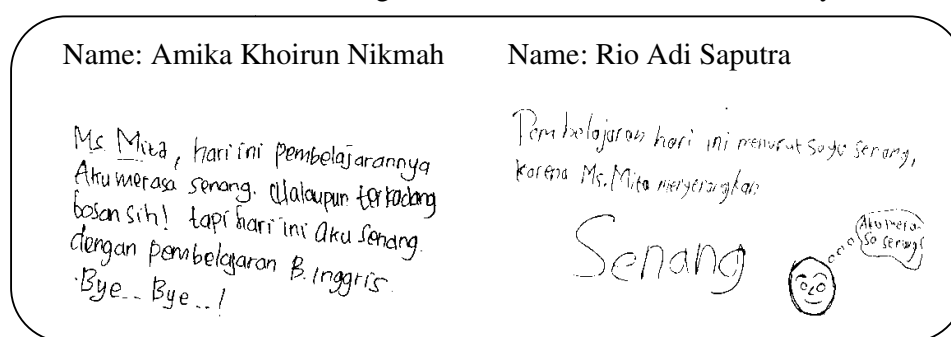 Name: Amika Khoirun Nikmah
Ms Mita, hari ini pembelajarannya
Aku merasa senang. Walaupun terkadang
bosan sih! tapi hari ini aku senang
dengan pembelajaran B. Inggris.
Bye.. Bye..!
Name: Rio Adi Saputra
Pembelajaran hari ini menurut saya senang,
karena Ms. Mita menyenangkan
Senang
Aku mera-
sa senang